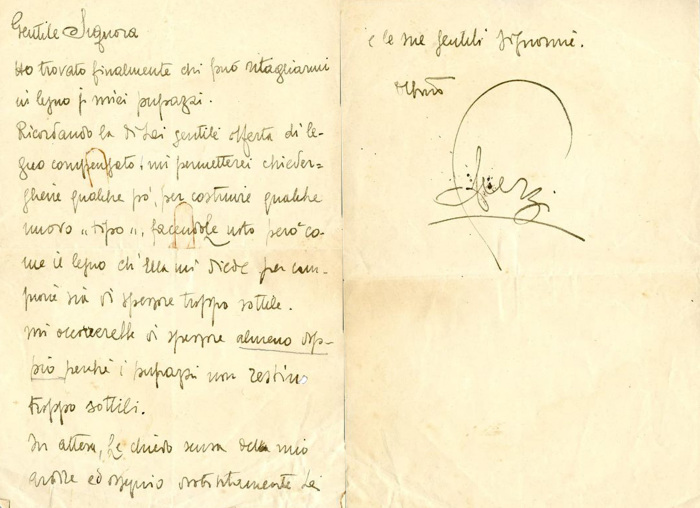 Gentile Signora
Ho trovato finalmente chi può ritagliarmi
in legno i miei pupazzi.
Ricordando la di Lei gentile offerta di le-
gno compensato, mi permetterei chieder-
gliene qualche pò, per costruire qualche
nuovo „tipo„, facendole noto però co-
me il legno ch'Ella mi diede per cam-
pione sia di spessore troppo sottile.
Mi occorrerebbe di spessore almeno dop-
pio perchè i pupazzi non restino
troppo sottili.
In attesa, Le chiedo scusa del mio
ardire ed ossequio distintamente Lei
e le sue gentili signorine.